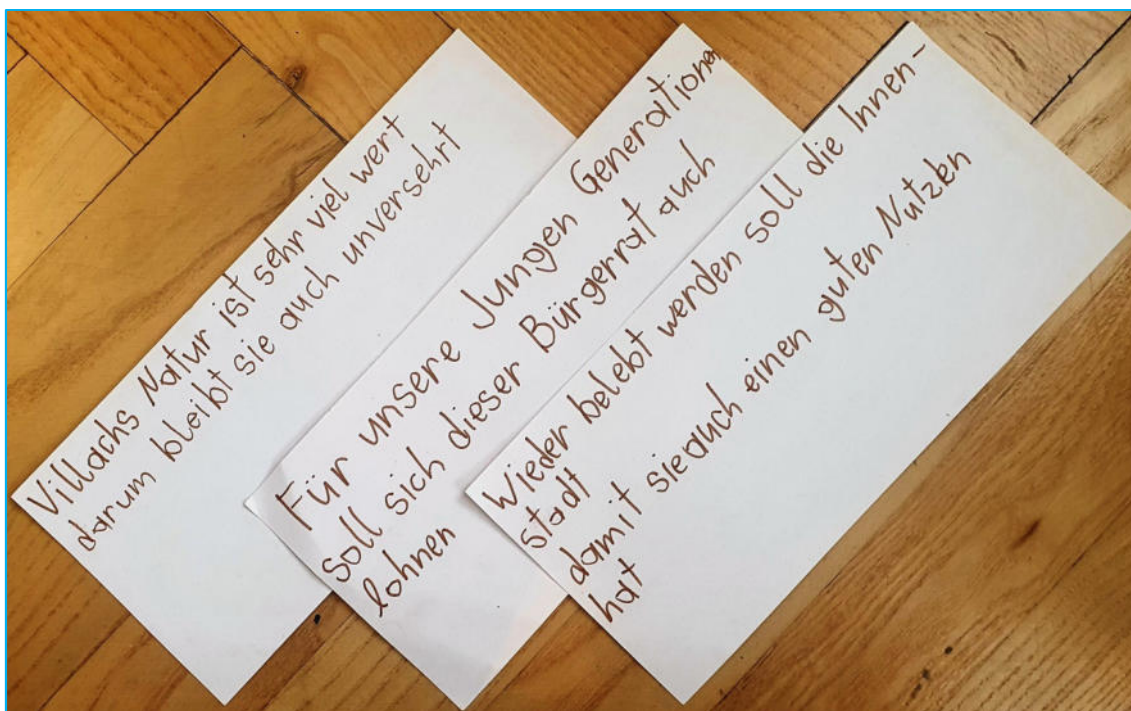 Villachs Natur ist sehr viel wert
darum bleibt sie auch unversehrt
Für unsere Jungen Generationen
soll sich dieser Bürgerrat auch
lohnen
Wieder belebt werden soll die Innen-
stadt
damit sie auch einen guten Nutzen
hat